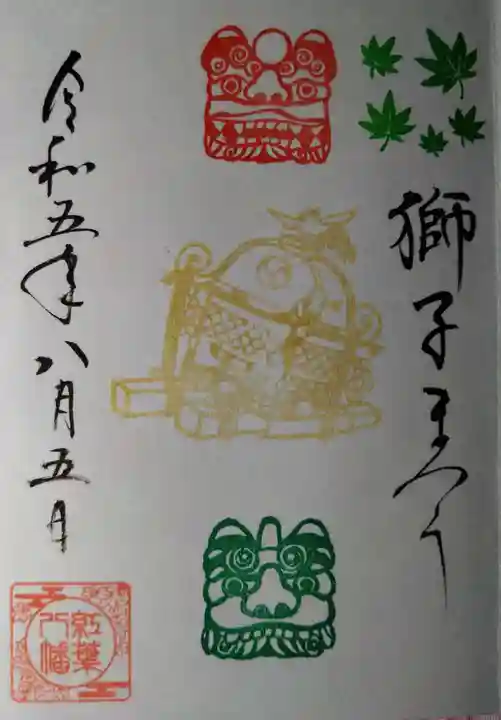 獅子まつり
令和五年八月五日
紅葉
八幡